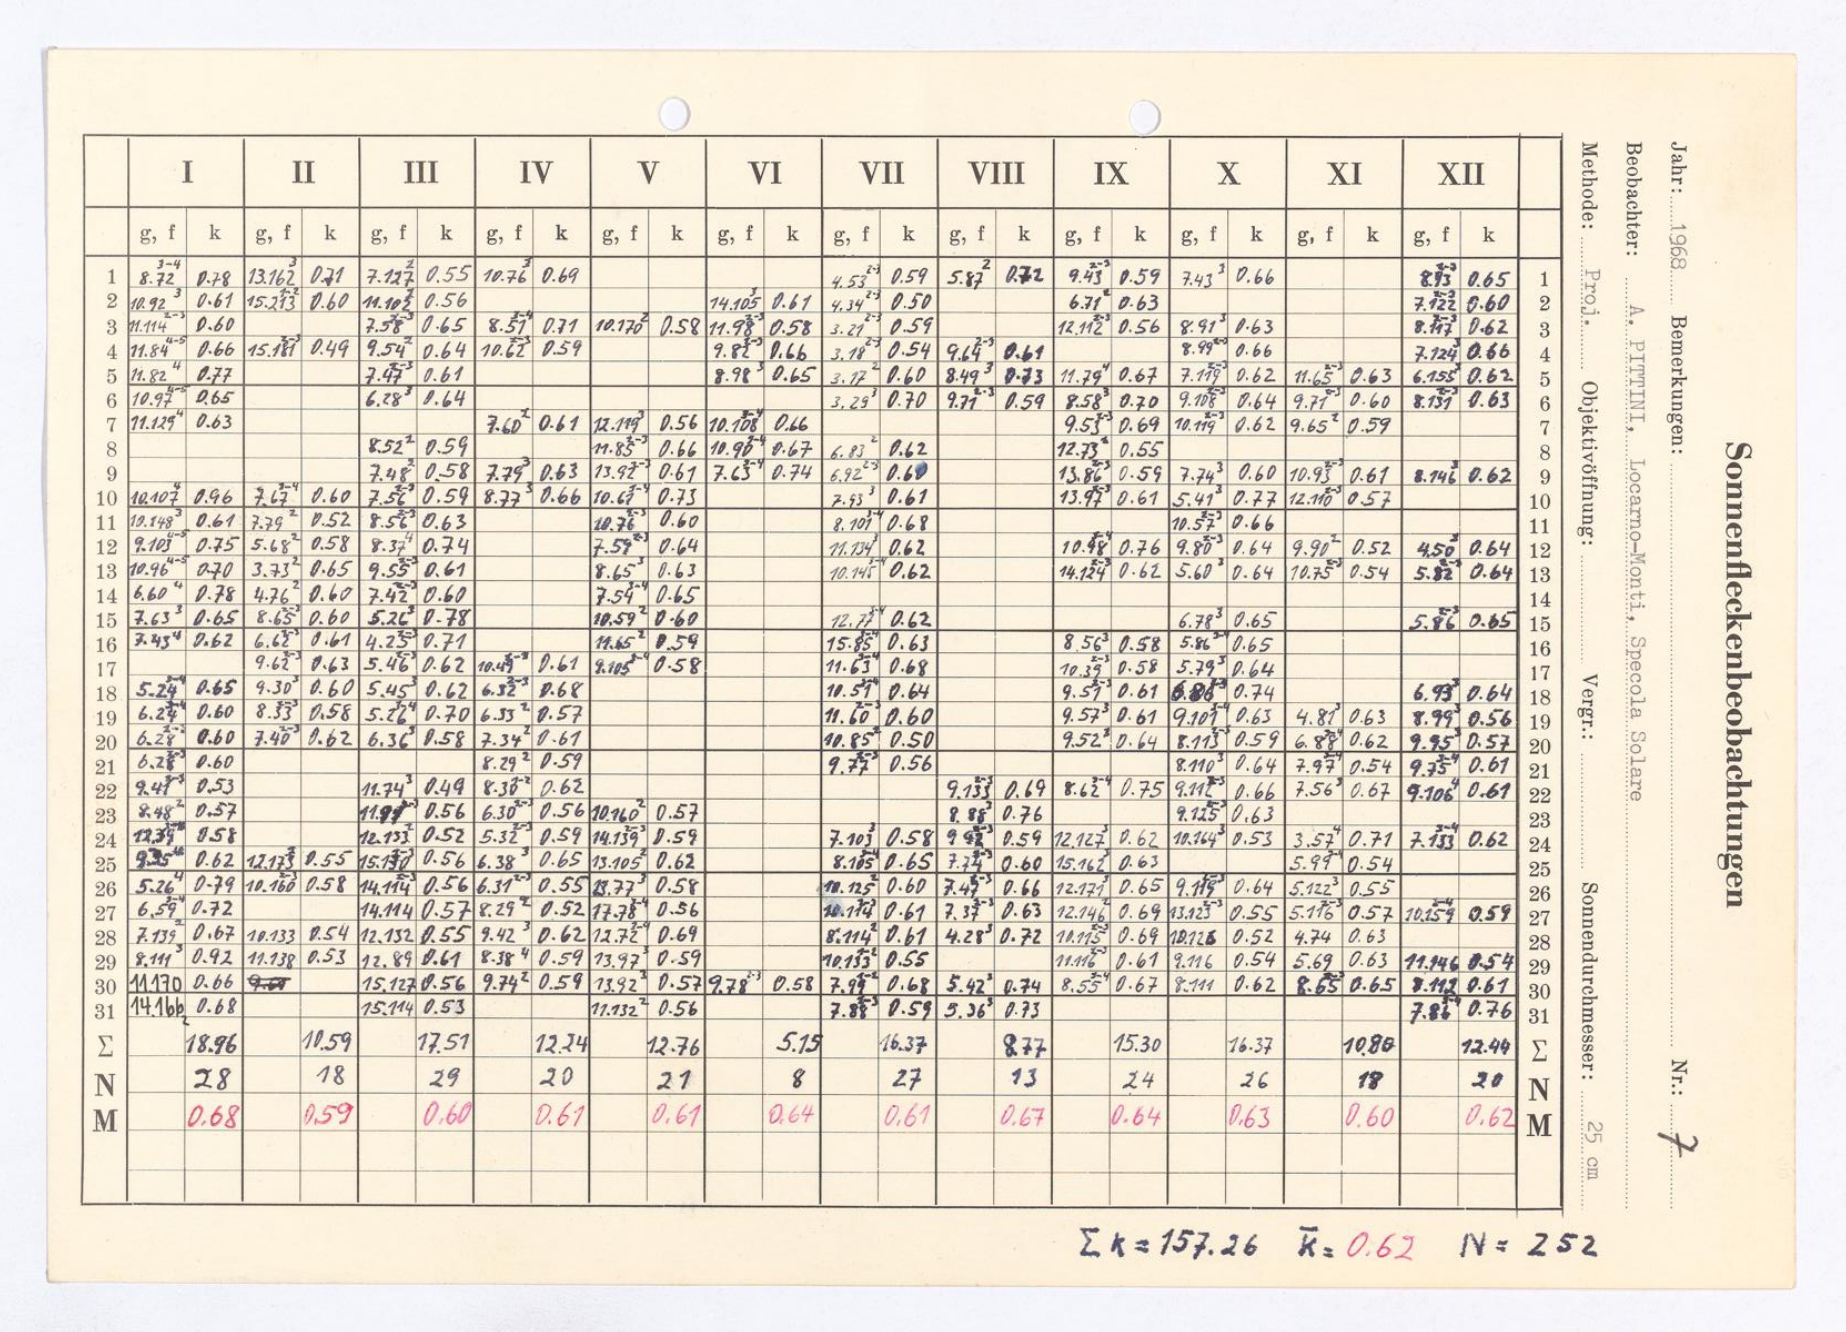 Sonnenfleckenbeobachtungen
Jahr: 1968 Bemerkungen: Nr.: 7
Beobachter: A. PITTINI, Locarno-Monti, Specola Solare
Methode: Proj. Objektivöffnung: Vergr.: Sonnendurchmesser: 25 cm
I II III IV V VI VII VIII IX X XI XII
g, f k g, f k g, f k g, f k g, f k g, f k g, f k g, f k g, f k g, f k g, f k g, f k
1 8.72 3-4 0.78 13.162 3 0.71 7.127 2 0.55 10.76 3 0.69 4.53 2-3 0.59 5.87 2 0.72 9.43 2-3 0.59 7.43 3 0.66 0.65 1
2 10.92 3 0.61 0.60 0.56 14.105 3 0.61 4.34 2-3 0.50 6.71 2 0.63 7.122 0.60 2
3 11.114 2-3 0.60 7.58 0.65 8.51 3-4 0.71 10.170 2 0.58 11.98 2-3 0.58 3.21 2-3 0.59 12.112 0.56 8.91 3 0.63 0.62 3
4 11.84 4-5 0.66 0.49 9.54 2 0.64 10.62 2-3 0.59 9.82 0.66 3.18 2-3 0.54 9.64 2-3 0.61 8.99 0.66 7.124 0.66 4
5 11.82 4 0.77 7.47 2-3 0.61 8.98 3 0.65 3.17 2 0.60 8.49 3 0.73 11.79 4 0.67 7.119 0.62 11.65 2-3 0.63 6.155 0.62 5
6 10.97 4-5 0.65 6.28 3 0.64 3.29 3 0.70 9.71 2-3 0.59 8.58 3 0.70 9.108 0.64 9.71 0.60 8.131 0.63 6
7 11.129 4 0.63 7.60 2 0.61 12.119 0.56 10.108 3-4 0.66 9.53 0.69 10.119 2 0.62 9.65 2 0.59 7
8 8.52 2 0.59 11.85 2-3 0.66 10.90 3-4 0.67 6.83 2 0.62 12.73 0.55 8
9 7.48 2 0.58 7.79 3 0.63 13.97 2-3 0.61 7.63 3-4 0.74 6.92 2-3 0.60 13.86 0.59 7.74 3 0.60 10.93 0.61 8.146 2 0.62 9
10 10.107 4 0.96 7.67 3-4 0.60 7.56 0.59 8.77 3 0.66 10.67 0.73 7.93 3 0.61 13.97 0.61 5.41 3 0.77 12.110 0.57 10
11 10.148 3 0.61 7.79 2 0.52 8.56 0.63 10.76 0.60 8.101 3-4 0.68 10.57 0.66 11
12 9.103 4-5 0.75 5.68 2 0.58 8.37 4 0.74 7.59 2-3 0.64 11.134 3 0.62 10.98 0.76 9.80 0.64 9.90 2 0.52 4.50 0.64 12
13 10.96 4-5 0.70 3.73 2 0.65 9.55 0.61 8.65 3 0.63 10.145 0.62 14.124 0.62 5.60 3 0.64 10.75 0.54 5.82 0.64 13
14 6.60 4 0.78 4.76 2 0.60 7.42 0.60 7.54 0.65 14
15 7.63 3 0.65 8.65 0.60 5.26 3 0.78 10.59 2 0.60 12.77 0.62 6.78 3 0.65 5.86 0.65 15
16 7.43 4 0.62 6.62 0.61 4.25 0.71 11.65 2 0.59 15.85 0.63 8.56 3 0.58 5.86 0.65 16
17 9.62 0.63 5.46 0.62 10.49 0.61 9.105 0.58 11.63 0.68 10.39 0.58 5.79 3 0.64 17
18 5.24 0.65 9.30 3 0.60 5.45 3 0.62 6.32 2-3 0.68 10.51 0.64 9.51 0.61 0.74 6.93 3 0.64 18
19 6.24 0.60 8.33 0.58 5.26 0.70 6.33 2 0.57 11.60 0.60 9.57 3 0.61 9.101 0.63 4.81 3 0.63 8.99 3 0.56 19
20 6.28 0.60 7.40 0.62 6.36 3 0.58 7.34 2 0.61 10.85 2 0.50 9.52 0.64 8.113 0.59 6.88 0.62 9.95 3 0.57 20
21 6.28 3 0.60 8.29 2 0.59 9.77 0.56 8.110 3 0.64 7.97 0.54 9.75 0.61 21
22 9.41 0.53 11.74 3 0.49 8.30 0.62 9.133 0.69 8.62 3-4 0.75 9.112 0.66 7.56 3 0.67 9.106 0.61 22
23 8.48 2 0.57 0.56 6.30 0.56 10.160 2 0.57 8.88 3 0.76 9.125 3 0.63 23
24 0.58 12.133 0.52 5.32 0.59 14.139 0.59 7.103 3 0.58 0.59 12.127 3 0.62 10.164 3 0.53 3.57 0.71 7.133 3-4 0.62 24
25 0.62 12.173 0.55 0.56 6.38 3 0.65 13.105 2 0.62 8.105 0.65 7.74 0.60 15.162 0.63 5.99 0.54 25
26 5.26 4 0.79 10.160 0.58 14.114 0.56 6.31 2-3 0.55 0.58 10.125 2 0.60 7.47 0.66 12.171 0.65 0.64 5.122 3 0.55 26
27 6.59 0.72 14.114 0.57 8.29 2 0.52 17.78 0.56 0.61 7.37 2-3 0.63 12.146 2 0.69 13.123 0.55 5.116 0.57 10.159 0.59 27
28 7.139 2 0.67 10.133 0.54 12.132 0.55 9.42 3 0.62 12.72 0.69 8.114 2 0.61 4.28 3 0.72 10.115 0.69 0.52 4.74 0.63 28
29 8.111 3 0.92 11.138 0.53 12.89 0.61 8.38 4 0.59 13.97 3 0.59 10.133 2 0.55 11.116 0.61 9.116 0.54 5.69 0.63 11.146 0.54 29
30 11.170 0.66 15.127 0.56 9.74 2 0.59 13.92 3 0.57 9.78 2-3 0.58 7.99 0.68 5.42 3 0.74 8.55 3-4 0.67 8.111 0.62 8.65 0.65 8.112 0.61 30
31 14.166 0.68 15.114 0.53 11.132 2 0.56 7.88 0.59 5.36 3 0.73 7.86 0.76 31
Σ 18.96 10.59 17.51 12.24 12.76 5.15 16.37 8.77 15.30 16.37 10.80 12.44 Σ
N 28 18 29 20 21 8 27 13 24 26 18 20 N
M 0.68 0.59 0.60 0.61 0.61 0.64 0.61 0.67 0.64 0.63 0.60 0.62 M
Σk = 157.26 k̄ = 0.62 N = 252